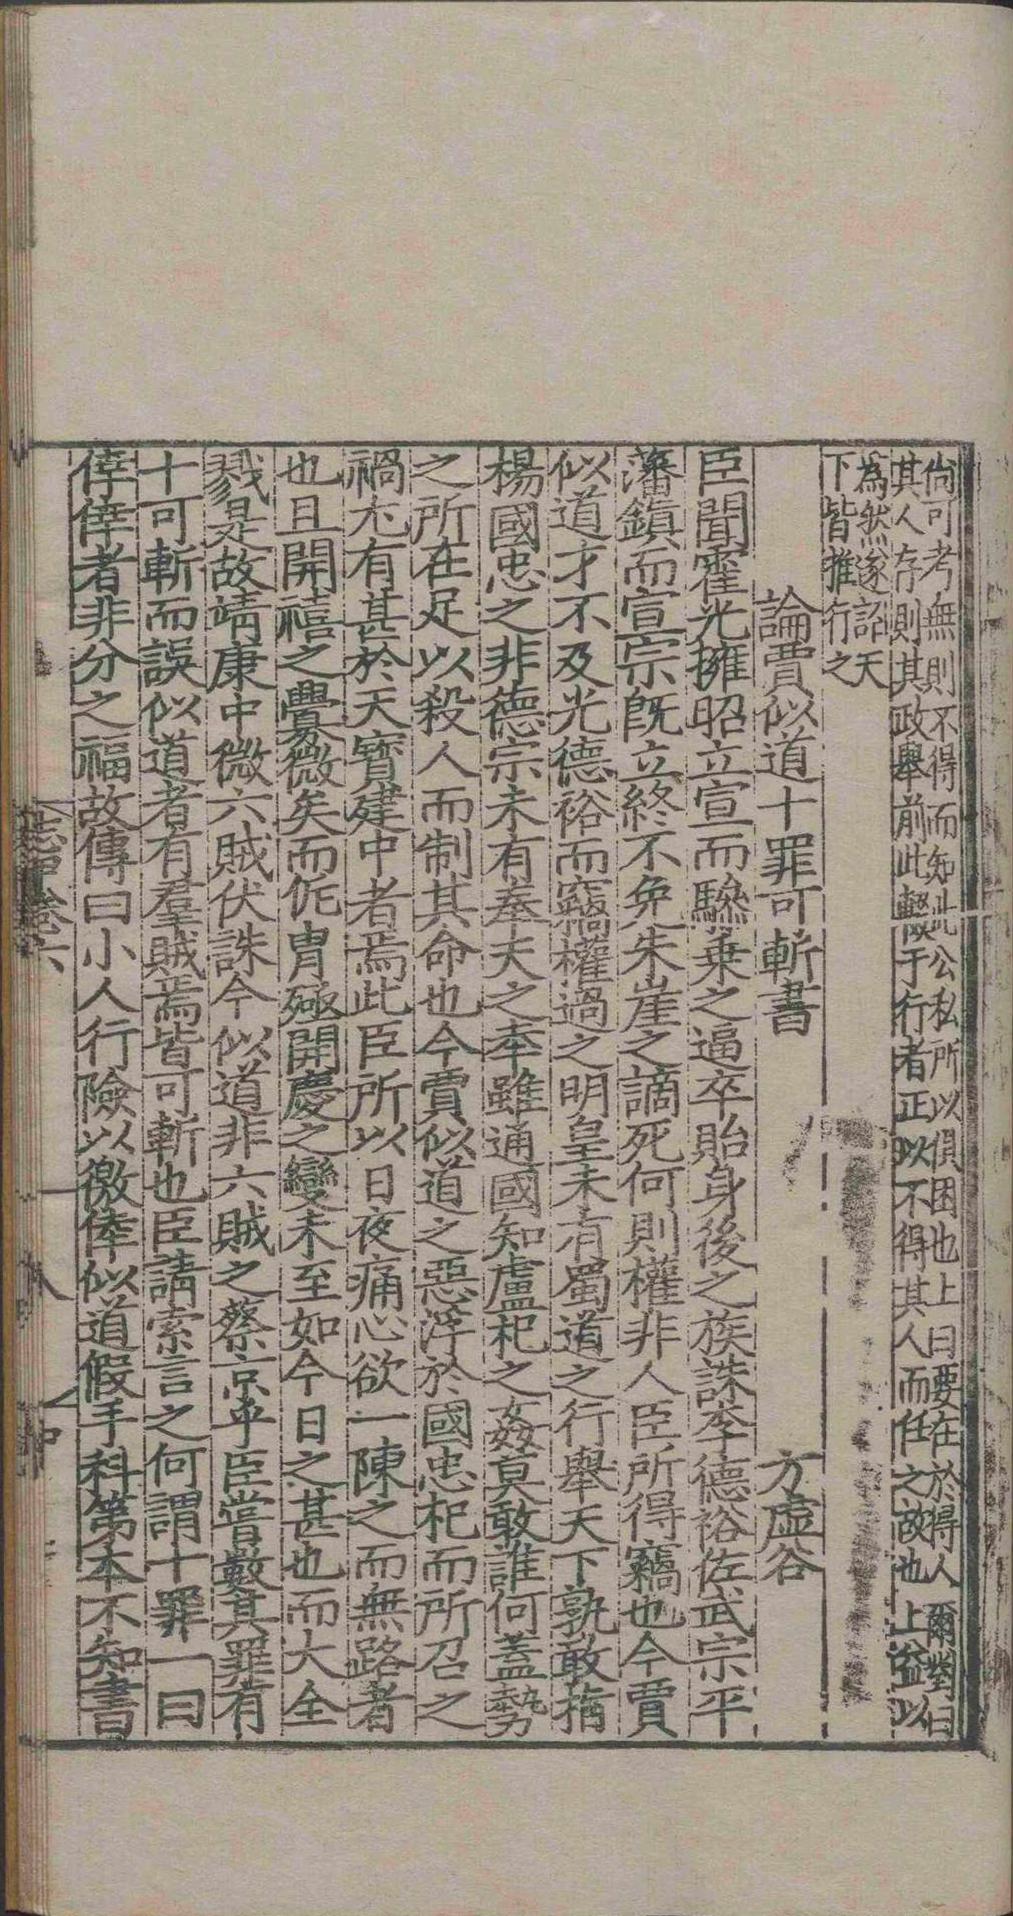 尚可考無則不得而知此公私所以俱困也上曰要在於得人爾對曰
其人存則其政舉前此輟于行者正以不得其人而任之故也上益以
為然遂詔天
下皆推行之
論賈似道十罪可斬書 方虛谷
臣聞霍光擁昭立宣而驂乗之逼卒貽身後之族誅李德裕佐武宗平
藩鎮而宣宗旣立終不免朱崖之謫死何則權非人臣所得竊也今賈
似道才不及光德裕而竊權過之明皇未有蜀道之行舉天下孰敢指
楊國忠之非德宗未有奉天之幸雖通國知盧杞之姦莫敢誰何蓋勢
之所在足以殺人而制其命也今賈似道之惡浮於國忠杞而所召之
禍尤有甚於天寶建中者焉此臣所以日夜痛心欲一陳之而無路者
也且開禧之釁微矣而侂冑殛開慶之變未至如今日之甚也而大全
戮是故靖康中微六賊伏誅今似道非六賊之蔡京乎臣嘗數其罪有
十可斬而誤似道者有羣賊焉皆可斬也臣請索言之何謂十罪一曰
倖倖者非分之福故傳曰小人行險以徼倖似道假手科第本不知書